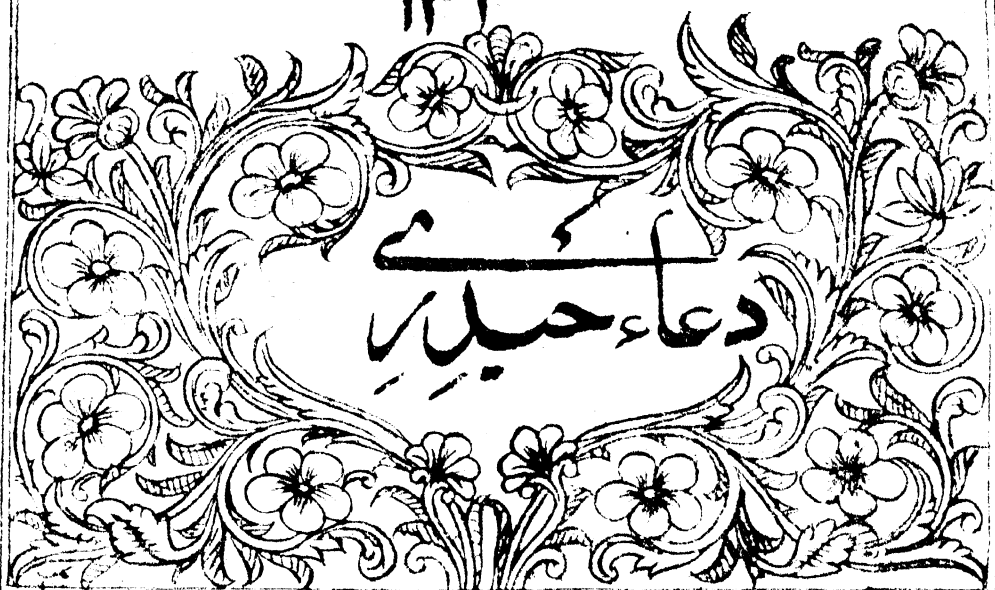 دعاء حیدری